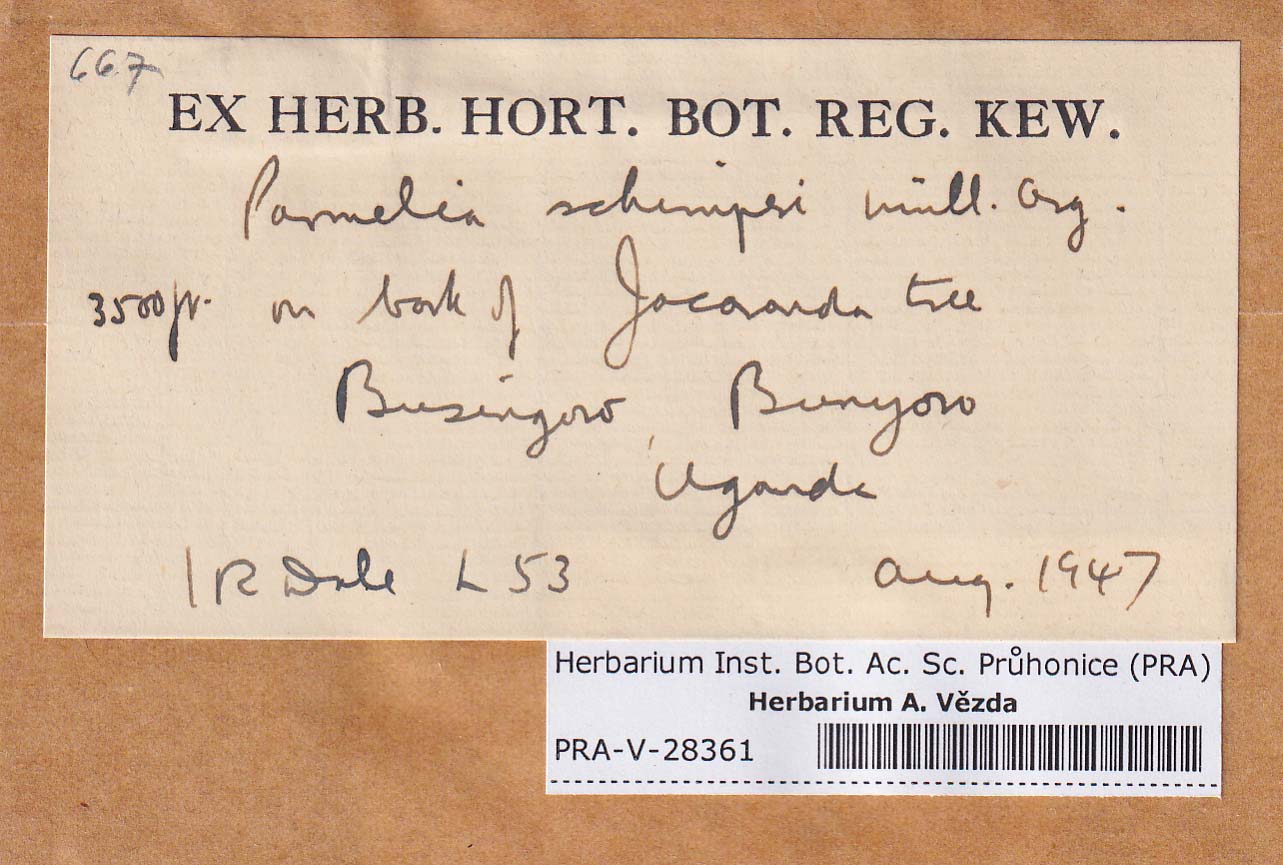 667
EX HERB. HORT. BOT. REG. KEW.
Parmelia schimperi Müll. Arg.
3500 ft. on bark of Jacaranda tree
Busingoro, Bunyoro
Uganda
I R Dale L 53 Aug. 1947
Herbarium Inst. Bot. Ac. Sc. Průhonice (PRA)
Herbarium A. Vězda
PRA-V-28361